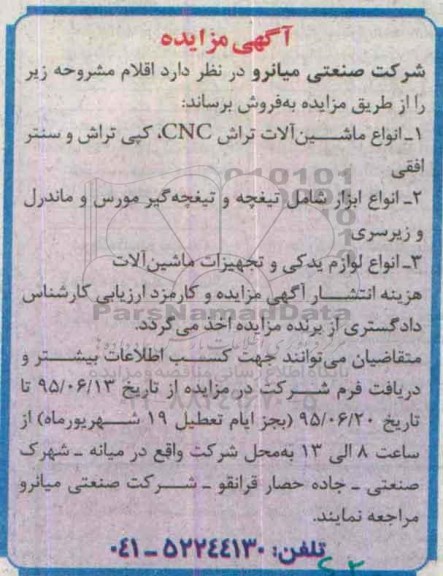 آگهی مزایده
شرکت صنعتی میانرو در نظر دارد اقلام مشروحه زیر
را از طریق مزایده به‌فروش برساند:
۱ـ انواع ماشین‌آلات تراش CNC، کپی تراش و سنتر
افقی
۲ـ انواع ابزار شامل تیغچه و تیغچه‌گیر مورس و ماندرل
و زیرسری
۳ـ انواع لوازم یدکی و تجهیزات ماشین‌آلات
هزینه انتشار آگهی مزایده و کارمزد ارزیابی کارشناس
دادگستری از برنده مزایده اخذ می‌گردد.
ParsNamadData
متقاضیان می‌توانند جهت کسب اطلاعات بیشتر و
دریافت فرم شرکت در مزایده از تاریخ ۹۵/۰۶/۱۳ تا
تاریخ ۹۵/۰۶/۲۰ (بجز ایام تعطیل ۱۹ شهریورماه) از
ساعت ۸ الی ۱۳ به‌محل شرکت واقع در میانه ـ شهرک
صنعتی ـ جاده حصار قرانقو ـ شرکت صنعتی میانرو
مراجعه نمایند.
تلفن: ۵۲۲۴۴۱۳۰ ـ ۰۴۱